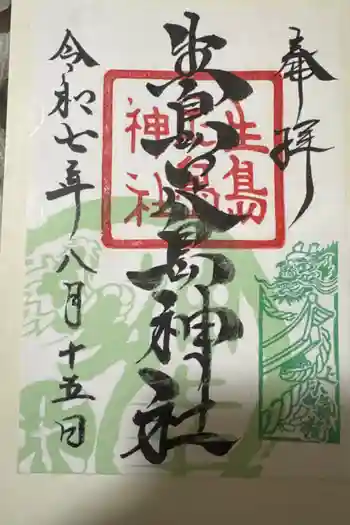 奉拝
生島足島神社
生島足島神社
令和七年八月十五日